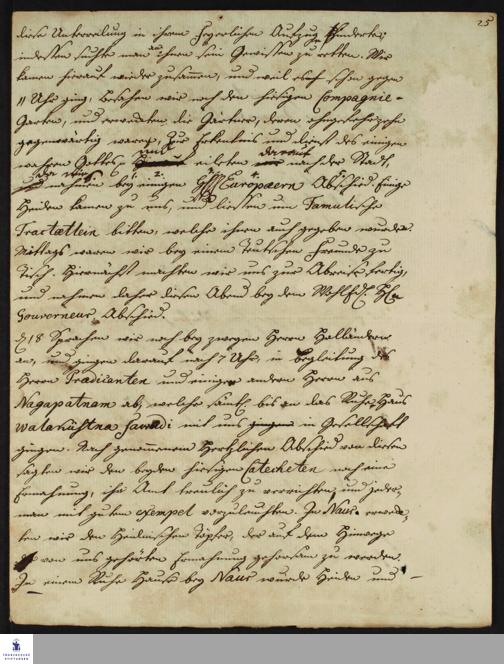 25
diese Unterredung in ihrem Feyerlichen Aufzug hinderte;
indessen suchte man an ihnen sein Gewissen zu retten. Wir
kamen hierauf wieder zusammen, und weil es schon gegen
11 Uhr ging, besahen wir noch den hiesigen Compagnie-
Garten, und ermahnten die Gärtner, deren
gegenwärtig waren, zur Erkentnis und Dienst des einigen
wahren Gottes. eileten darauf nach der Stadt
nahmen bey einigen Europaern Abschied. Einige
Heiden kamen zu uns, und liessen um Tamulische
Tractætlein bitten, welche ihnen auch gegeben wurden.
Mittags waren wir bey einem Teutschen Freunde zu
Tisch. Hiernächst machten wir uns zur Abreise fertig,
und nahmen daher diesen Abend bey dem
Gouverneur Abschied.
18 Sprachen wir noch bey zweyen Herrn Holländern
an, und gingen darauf nach 7 Uhr, in Begleitung des
Herrn Pradicanten und einiger andern Herrn aus
Nagapatnam ab, welche samt. bis an das Ruhe-Haus
mit uns in Gesellschaft
gingen. Nach genommenem Hertzlichen Abschied von diesen
sagten wir den beyden hiesigen Catecheten noch eine
Ermahnung, ihr Amt treulich zu verrichten, und jeder-
man mit gutem exempel vorzuleuchten. In Naur ermahn-
ten wir den Heidnischen Töpfer, der auf dem Hinwege
von uns gehörten Ermahnung gehorsam zu werden.
In einem Ruhe Hause bey Naur wurde Heiden und
FRANCKESCHE
STIFTUNGEN